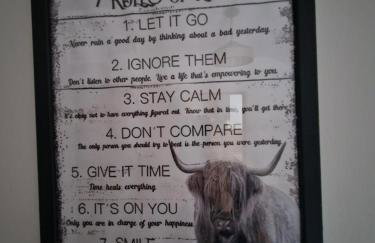 7 RULES OF
1. LET IT GO
Never ruin a good day by thinking about a bad yesterday.
2. IGNORE THEM
Don't listen to other people. Live a life that's empowering to you.
3. STAY CALM
It's okay not to have everything figured out. Know that in time, you'll get there.
4. DON'T COMPARE
The only person you should try to beat is the person you were yesterday.
5. GIVE IT TIME
Time heals everything.
6. IT'S ON YOU
Only you are in charge of your happiness
7. SMILE